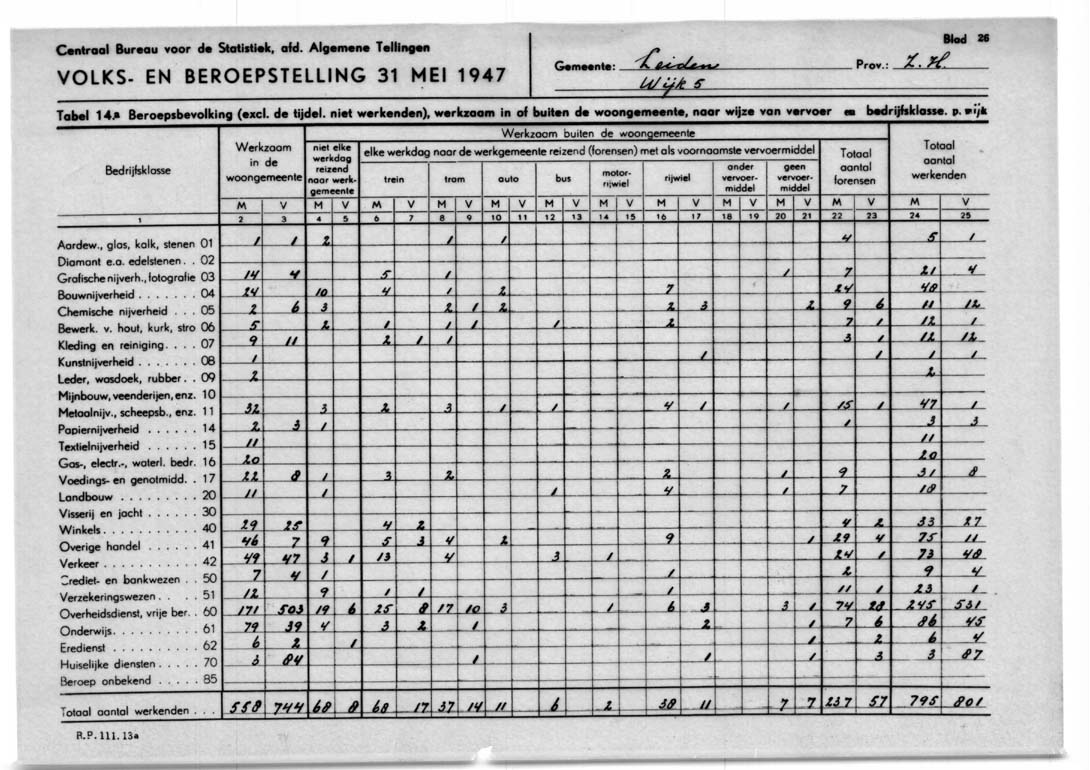 Centraal Bureau voor de Statistiek, afd. Algemene Tellingen
VOLKS- EN BEROEPSTELLING 31 MEI 1947
Gemeente: Leiden
Wijk 5
Prov.: Z.H.
Blad 26
Tabel 14.a Beroepsbevolking (excl. de tijdel. niet werkenden), werkzaam in of buiten de woongemeente, naar wijze van vervoer en bedrijfsklasse. p. wijk
Bedrijfsklasse
Werkzaam in de woongemeente
Werkzaam buiten de woongemeente
niet elke werkdag reizend naar werk-gemeente
elke werkdag naar de werkgemeente reizend (forensen) met als voornaamste vervoermiddel
trein tram auto bus motor-rijwiel rijwiel ander vervoer-middel geen vervoer-middel
Totaal aantal forensen
Totaal aantal werkenden
M V M V M V M V M V M V M V M V M V M V M V M V
1 2 3 4 5 6 7 8 9 10 11 12 13 14 15 16 17 18 19 20 21 22 23 24 25
Aardew., glas, kalk, stenen 01 1 1 2 1 1 4 5 1
Diamant e.a. edelstenen . . 02
Grafische nijverh., fotografie 03 14 4 5 1 1 7 21 4
Bouwnijverheid . . . . . . . 04 24 10 4 1 2 7 24 48
Chemische nijverheid . . . 05 2 6 3 2 1 2 2 3 2 9 6 11 12
Bewerk. v. hout, kurk, stro 06 5 2 1 1 1 1 2 7 1 12 1
Kleding en reiniging. . . . 07 9 11 2 1 1 3 1 12 12
Kunstnijverheid . . . . . . . 08 1 1 1 1 1
Leder, wasdoek, rubber . . 09 2 2
Mijnbouw, veenderijen, enz. 10
Metaalnijv., scheepsb., enz. 11 32 3 2 3 1 1 4 1 1 15 1 47 1
Papiernijverheid . . . . . . 14 2 3 1 1 3 3
Textielnijverheid . . . . . . 15 11 11
Gas-, electr.-, waterl. bedr. 16 20 20
Voedings- en genotmidd. . 17 22 8 1 3 2 2 1 9 31 8
Landbouw . . . . . . . . . 20 11 1 1 4 1 7 18
Visserij en jacht . . . . . . 30
Winkels. . . . . . . . . . . 40 29 25 4 2 4 2 33 27
Overige handel . . . . . . 41 46 7 9 5 3 4 2 9 1 29 4 75 11
Verkeer . . . . . . . . . . 42 49 47 3 1 13 4 3 1 24 1 73 48
Crediet- en bankwezen . . 50 7 4 1 1 2 9 4
Verzekeringswezen. . . . . 51 12 9 1 1 1 11 1 23 1
Overheidsdienst, vrije ber. . 60 171 503 19 6 25 8 17 10 3 1 6 3 3 1 74 28 245 531
Onderwijs. . . . . . . . . . 61 79 39 4 3 2 1 2 1 7 6 86 45
Eredienst . . . . . . . . . 62 6 2 1 1 2 6 4
Huiselijke diensten . . . . . 70 3 84 1 1 1 3 3 87
Beroep onbekend . . . . . 85
Totaal aantal werkenden . . . 558 744 68 8 68 17 37 14 11 6 2 38 11 7 7 237 57 795 801
R.P. 111. 13a